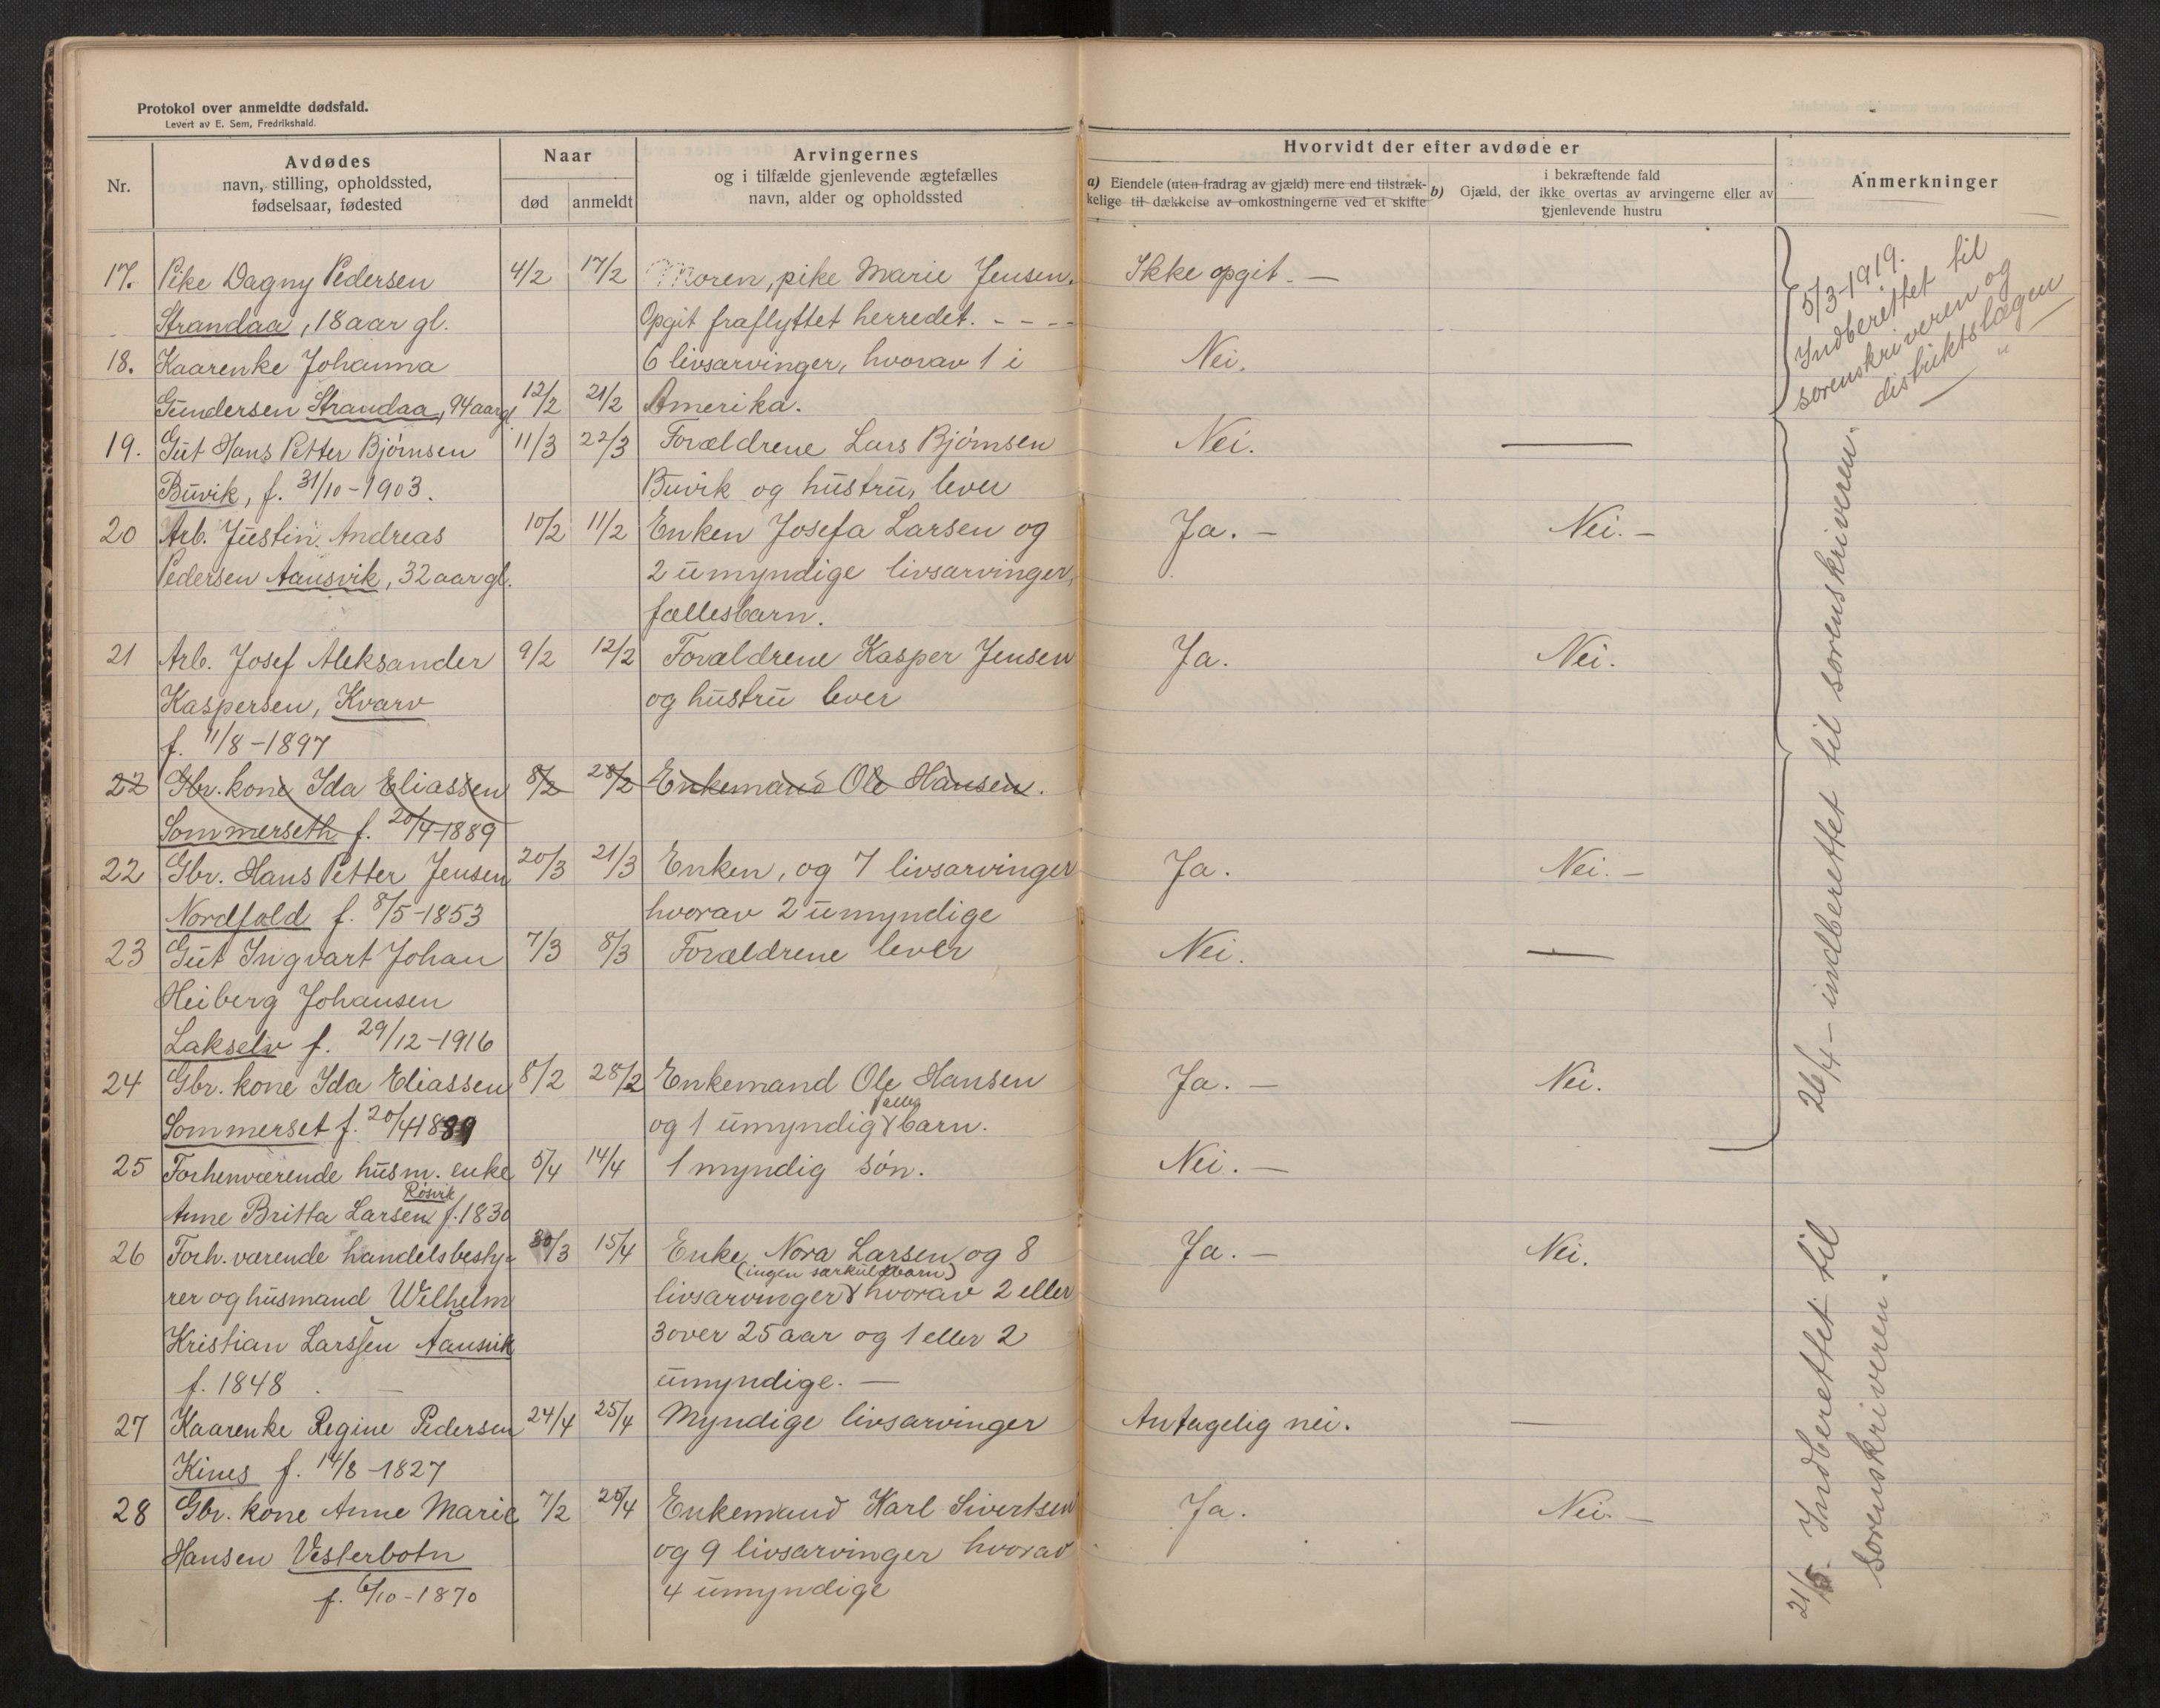 Protokol over anmeldte dødsfald.
Levert av E. Sem, Fredrikshald.
Nr.
Avdødes
navn, stilling, opholdssted,
fødselsaar, fødested
Naar
død
anmeldt
Arvingernes
og i tilfælde gjenlevende ægtefælles
navn, alder og opholdssted
Hvorvidt der efter avdøde er
a) Eiendele (uten fradrag av gjæld) mere end tilstræk-
kelige til dækkelse av omkostningerne ved et skifte
i bekræftende fald
b) Gjæld, der ikke overtas av arvingerne eller av
gjenlevende hustru
Anmerkninger
17. Pike Dagny Pedersen 4/2 17/2 Moren, pike Marie Jensen. Ikke opgit. —
Strandaa, 18 aar gl. Opgit fraflyttet herredet. - - -
18. Kaarenke Johanna 6 livsarvinger, hvorav 1 i Nei.
Gundersen Strandaa, 94 aar gl 12/2 21/2 Amerika.
19. Gut Hans Petter Bjørnsen 11/3 22/3 Forældrene Lars Bjørnsen Nei. —
Buvik, f. 31/10-1903. Buvik og hustru, lever
20 Arb. Justin Andreas 10/2 11/2 Enken Josefa Larsen og Ja. — Nei. —
Pedersen Aansvik, 32 aar gl. 2 umyndige livsarvinger,
fællesbarn.
21 Arb. Josef Aleksander 9/2 12/2 Forældrene Kasper Jensen Ja. Nei.
Kaspersen, Kvarv og hustru lever
f. 11/8-1897
22 Gbr. kone Ida Eliassen 8/2 28/2 Enkemand Ole Hansen.
Sommerseth f. 20/4-1889
22 Gbr. Hans Petter Jensen 20/3 21/3 Enken, og 7 livsarvinger Ja. Nei. —
Nordfold f. 8/5-1853 hvorav 2 umyndige
23 Gut Ingvart Johan 7/3 8/3 Forældrene lever Nei. —
Heiberg Johansen
Lakselv f. 29/12-1916
24 Gbr. kone Ida Eliassen 8/2 28/2 Enkemand Ole Hansen Ja. — Nei.
fælles
Sommerset f. 20/4 1889 og 1 umyndig barn.
25 Forhenværende husm. enke 5/4 14/4 1 myndig søn. Nei. —
Røsvik
Anne Britta Larsen f. 1830
26 Forh. værende handelsbesty- 30/3 15/4 Enke, Nora Larsen og 8 Ja. — Nei.
(ingen særkuldbarn)
rer og husmand Wilhelm livsarvinger hvorav 2 eller
Kristian Larssen Aansvik 3 over 25 aar og 1 eller 2
f. 1848 umyndige. —
27 Kaarenke Regine Pedersen 24/4 25/4 Myndige livsarvinger Antagelig nei. —
Kines f. 14/8-1827
28 Gbr. kone Anne Marie 7/2 25/4 Enkemand Karl Sivertsen Ja. Nei. —
Hansen Vesterbotn og 9 livsarvinger hvorav
f. 6/10-1870 4 umyndige
5/3-1919.
Indberettet til
sorenskriveren og
distriktslægen
26/4 - indberettet til sorenskriveren.
21/5. Indberettet til
sorenskriveren.